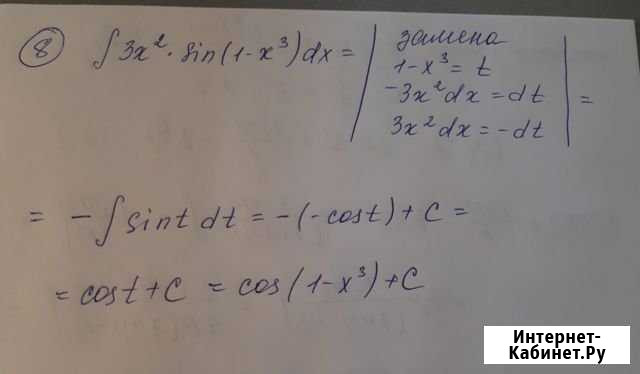 8 ∫3x²·sin(1-x³)dx = | замена
1-x³ = t
-3x²dx = dt
3x²dx = -dt | =
= -∫sint dt = -(-cost) + C =
= cost + C = cos(1-x³) + C
Интернет-
Кабинет.Ру